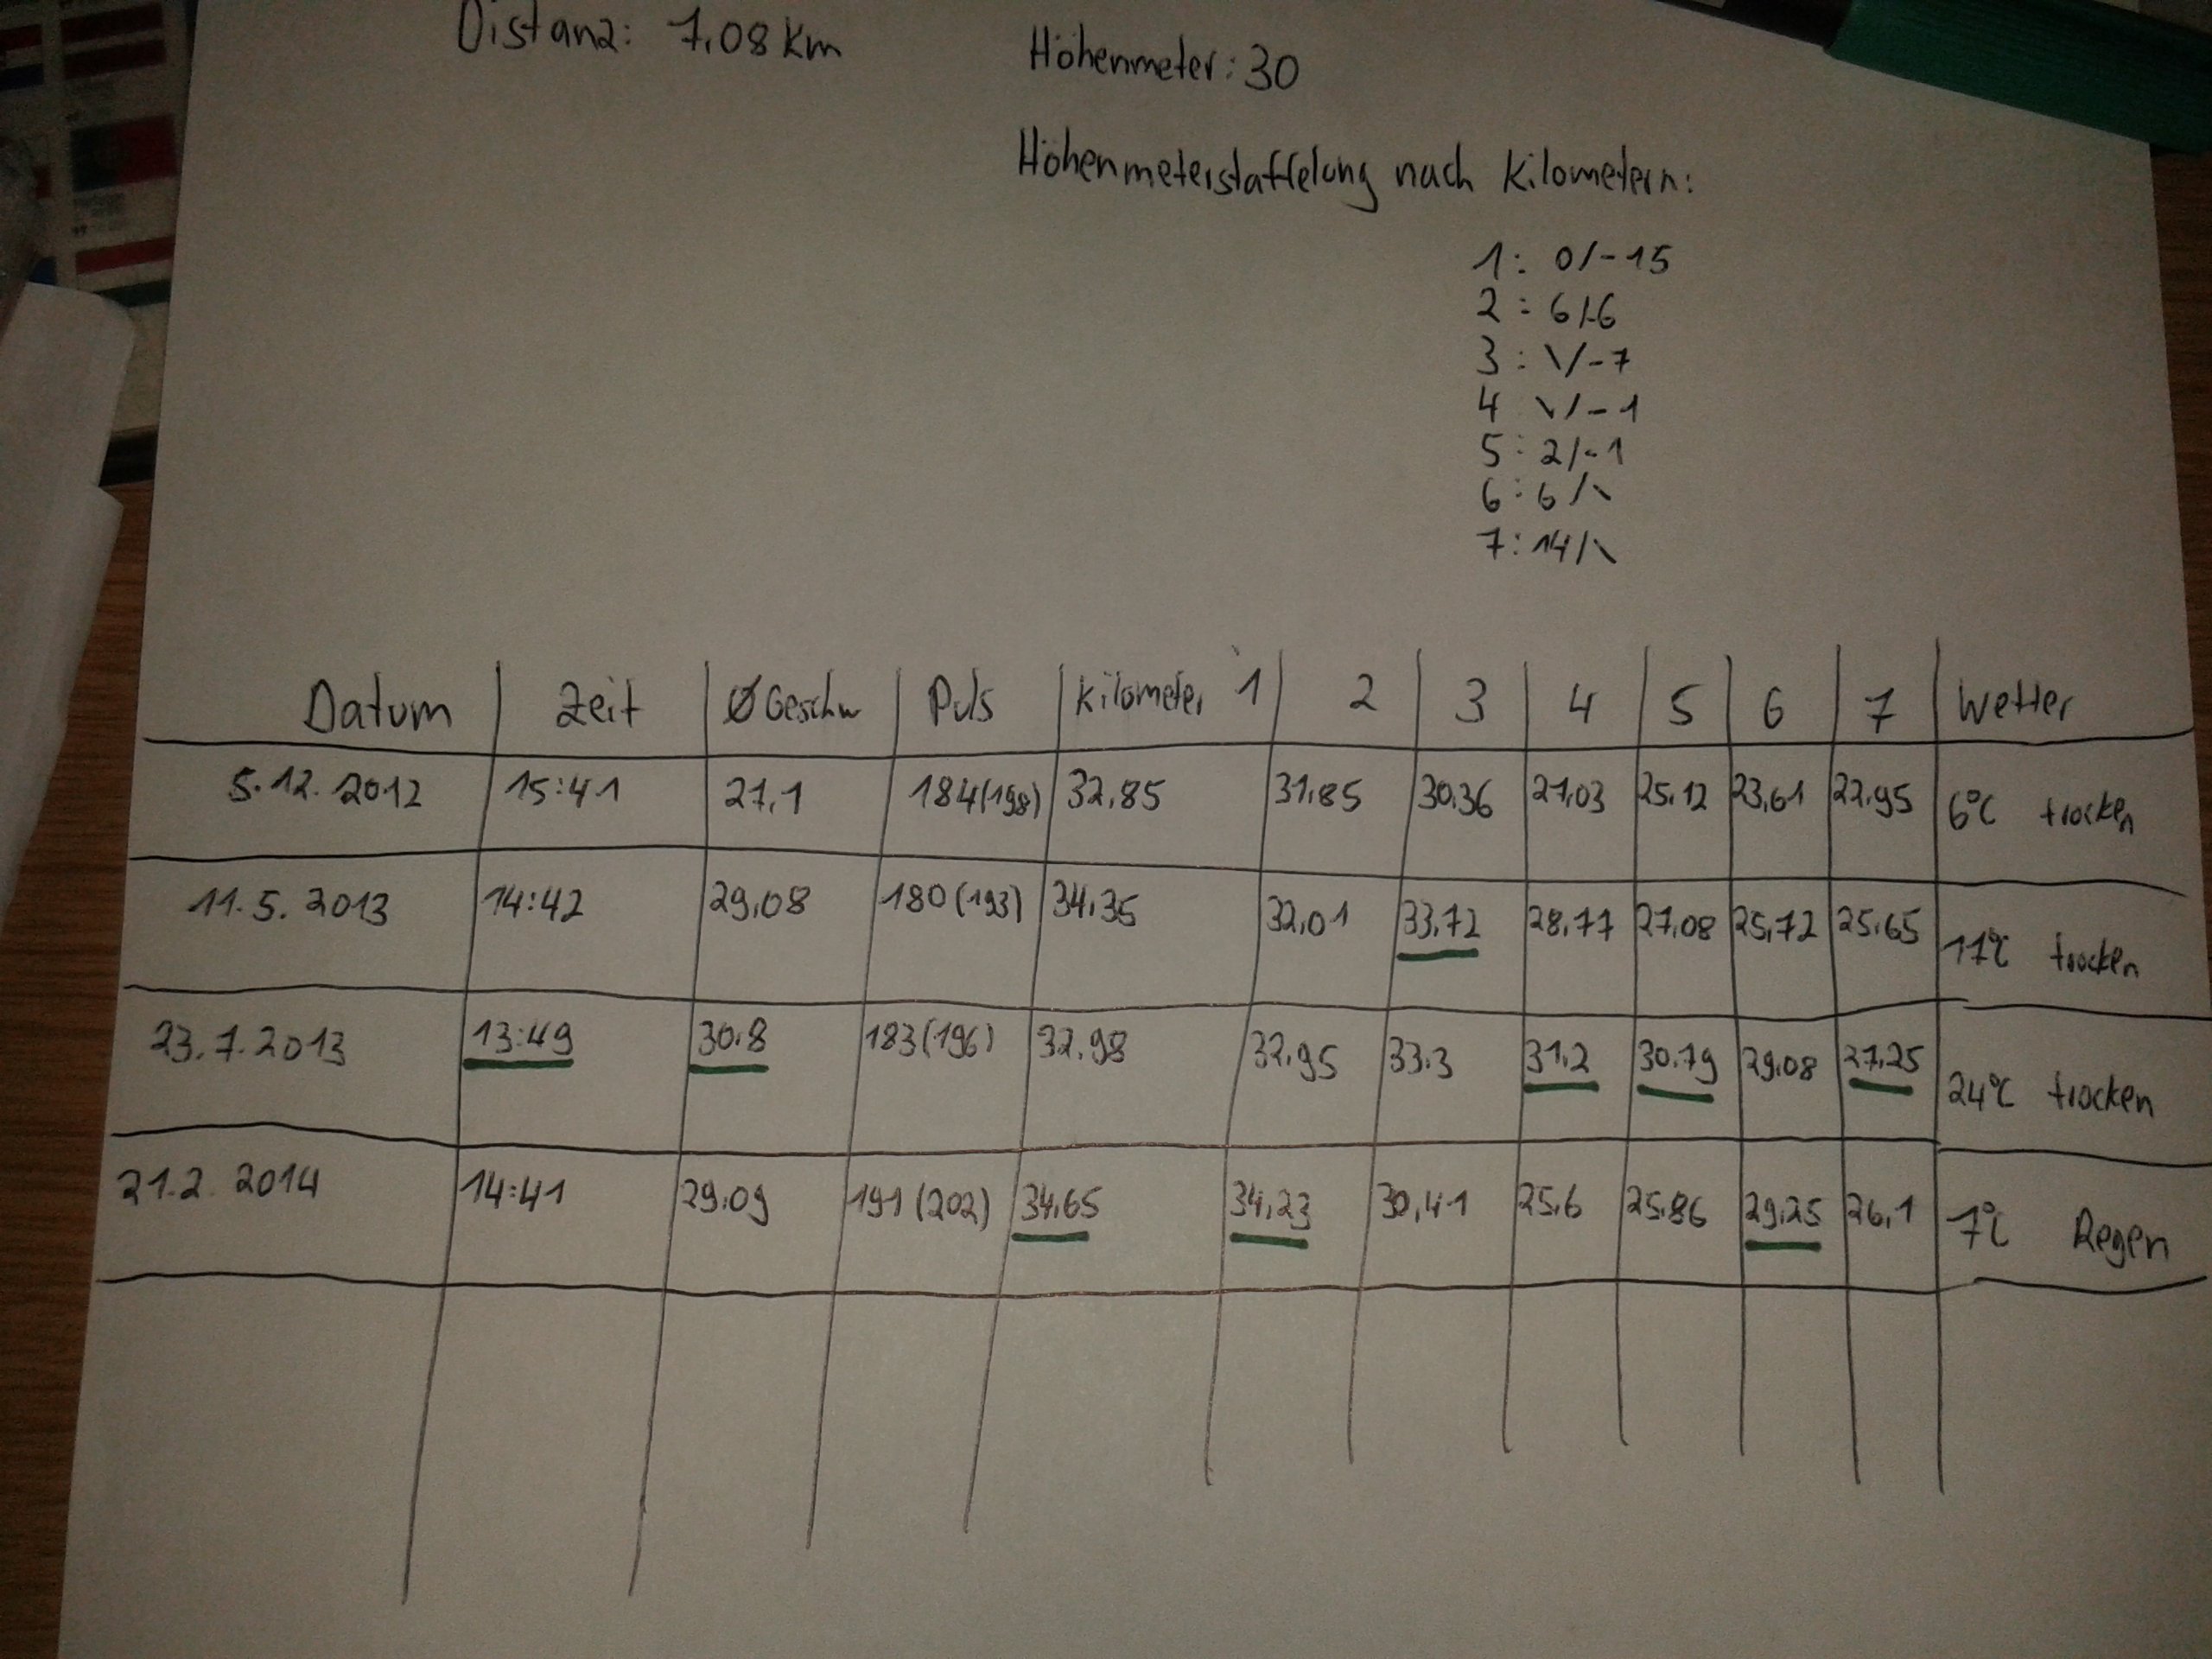 Distanz: 7,08 Km
Höhenmeter: 30
Höhenmeterstaffelung nach Kilometern:
1: 0/-15
2: 6/-6
3: \/-7
4 \/-1
5: 2/-1
6: 6/\
7: 14/\
Datum Zeit ØGeschw Puls Kilometer 1 2 3 4 5 6 7 Wetter
5.12.2012 15:41 27,1 184(198) 32,85 31,85 30,36 27,03 25,12 23,61 22,95 6°C trocken
11.5.2013 14:42 29,08 180(193) 34,35 32,01 33,72 28,77 27,08 25,72 25,65 17°C trocken
23.7.2013 13:49 30,8 183(196) 32,98 32,95 33,3 31,2 30,79 29,08 27,25 24°C trocken
21.2.2014 14:41 29,09 191(202) 34,65 34,23 30,41 25,6 25,86 29,25 26,1 7°C Regen